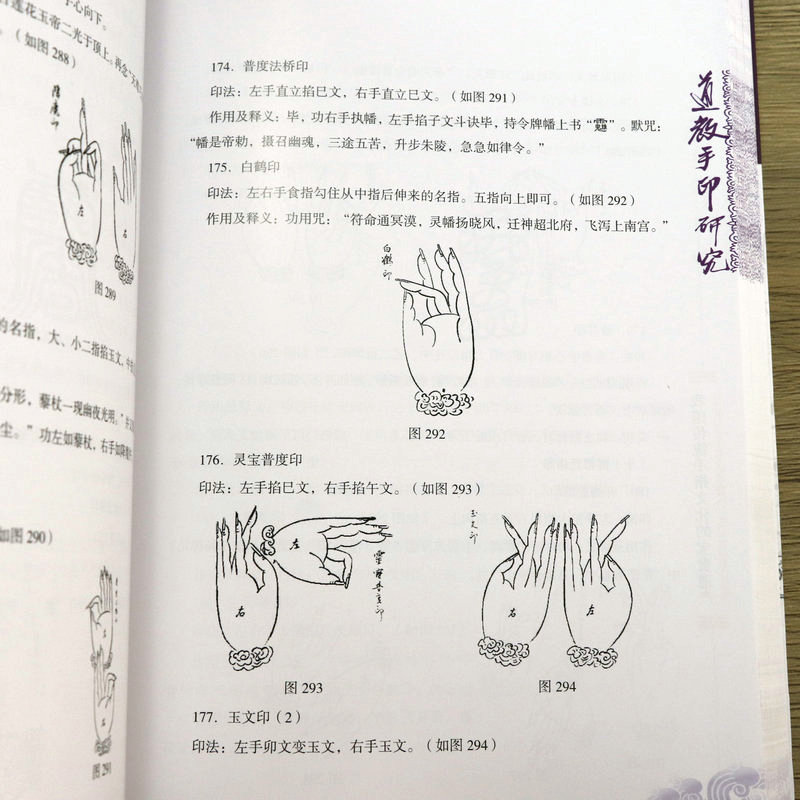 于心向下。
莲花玉帝二光于顶上。再念“天
（如图 288）
左
图 289
的名指，大、小二指掐玉文，中
分形，藜杖一现幽夜光明。”
尘。”功左如藜杖，右手如
如图 290）
左
图 291
174．普度法桥印
印法：左手直立掐巳文，右手直立巳文。（如图 291）
作用及释义：毕，功右手执幡，左手掐子文斗诀毕，持令牌幡上书“”。默咒：
“幡是帝勅，摄召幽魂，三途五苦，升步朱陵，急急如律令。”
175．白鹤印
印法：左右手食指勾住从中指后伸来的名指。五指向上即可。（如图 292）
作用及释义：功用咒：“符命通冥漠，灵幡扬晓风，迁神超北府，飞泻上南宫。”
白鶴印
图 292
176．灵宝普度印
印法：左手掐巳文，右手掐午文。（如图 293）
右
左
靈寶普度印
图 293
玉文印
右
左
图 294
177．玉文印（2）
印法：左手卯文变玉文，右手玉文。（如图 294）
道教手印研究